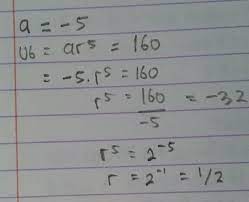 a = -5
U6 = ar⁵ = 160
= -5. r⁵ = 160
r⁵ = 160/-5 = -32
r⁵ = 2⁻⁵
r = 2⁻¹ = 1/2